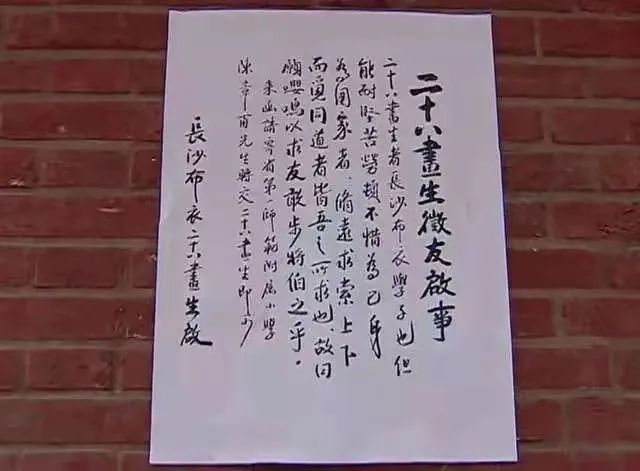 二十八畫生徵友啟事
二十八畫生者長沙布衣學子也但
能耐堅苦勞頓不惜為己身
為國家者、脩遠求索上下
而覓同道者皆吾之所求也、故曰
願嚶鳴以求友敢步將伯之乎。
來函請寄省第一師範附屬小學
陳章甫先生轉交二十八畫生即可
長沙布衣二十八畫生啟